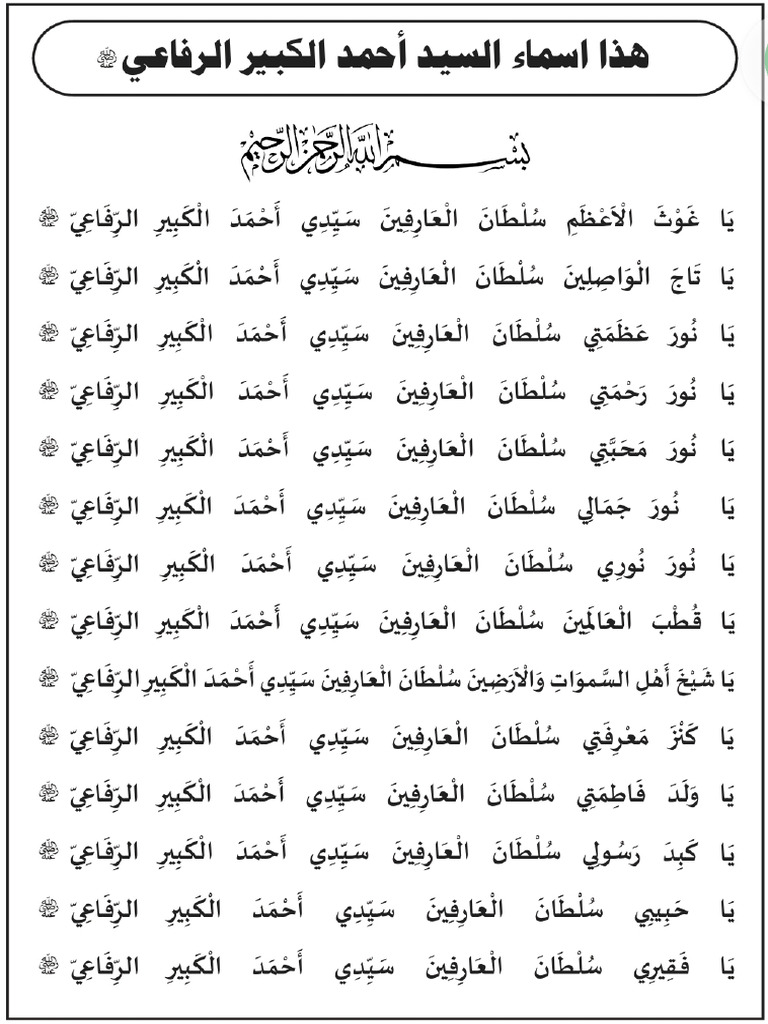 هذا اسماء السيد أحمد الكبير الرفاعي ؓ
بِسْمِ اللَّهِ الرَّحْمَنِ الرَّحِيمِ
يَا غَوْثَ الْاَعْظَمِ سُلْطَانَ الْعَارِفِينَ سَيِّدِي أَحْمَدَ الْكَبِيرِ الرِّفَاعِيّ ؓ
يَا تَاجَ الْوَاصِلِينَ سُلْطَانَ الْعَارِفِينَ سَيِّدِي أَحْمَدَ الْكَبِيرِ الرِّفَاعِيّ ؓ
يَا نُورَ عَظَمَتِي سُلْطَانَ الْعَارِفِينَ سَيِّدِي أَحْمَدَ الْكَبِيرِ الرِّفَاعِيّ ؓ
يَا نُورَ رَحْمَتِي سُلْطَانَ الْعَارِفِينَ سَيِّدِي أَحْمَدَ الْكَبِيرِ الرِّفَاعِيّ ؓ
يَا نُورَ مَحَبَّتِي سُلْطَانَ الْعَارِفِينَ سَيِّدِي أَحْمَدَ الْكَبِيرِ الرِّفَاعِيّ ؓ
يَا نُورَ جَمَالِي سُلْطَانَ الْعَارِفِينَ سَيِّدِي أَحْمَدَ الْكَبِيرِ الرِّفَاعِيّ ؓ
يَا نُورَ نُورِي سُلْطَانَ الْعَارِفِينَ سَيِّدِي أَحْمَدَ الْكَبِيرِ الرِّفَاعِيّ ؓ
يَا قُطْبَ الْعَالَمِينَ سُلْطَانَ الْعَارِفِينَ سَيِّدِي أَحْمَدَ الْكَبِيرِ الرِّفَاعِيّ ؓ
يَا شَيْخَ أَهْلِ السَّموَاتِ وَالْاَرَضِينَ سُلْطَانَ الْعَارِفِينَ سَيِّدِي أَحْمَدَ الْكَبِيرِ الرِّفَاعِيّ ؓ
يَا كَنْزَ مَعْرِفَتِي سُلْطَانَ الْعَارِفِينَ سَيِّدِي أَحْمَدَ الْكَبِيرِ الرِّفَاعِيّ ؓ
يَا وَلَدَ فَاطِمَتِي سُلْطَانَ الْعَارِفِينَ سَيِّدِي أَحْمَدَ الْكَبِيرِ الرِّفَاعِيّ ؓ
يَا كَبِدَ رَسُولِي سُلْطَانَ الْعَارِفِينَ سَيِّدِي أَحْمَدَ الْكَبِيرِ الرِّفَاعِيّ ؓ
يَا حَبِيبِي سُلْطَانَ الْعَارِفِينَ سَيِّدِي أَحْمَدَ الْكَبِيرِ الرِّفَاعِيّ ؓ
يَا فَقِيرِي سُلْطَانَ الْعَارِفِينَ سَيِّدِي أَحْمَدَ الْكَبِيرِ الرِّفَاعِيّ ؓ